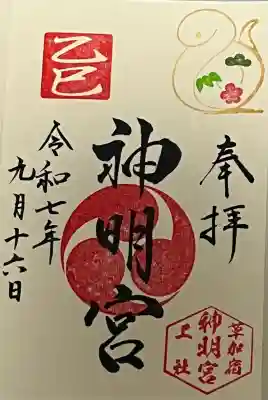 奉拝
神明宮
乙巳
令和七年
九月十六日
草加宿
神明宮
上社